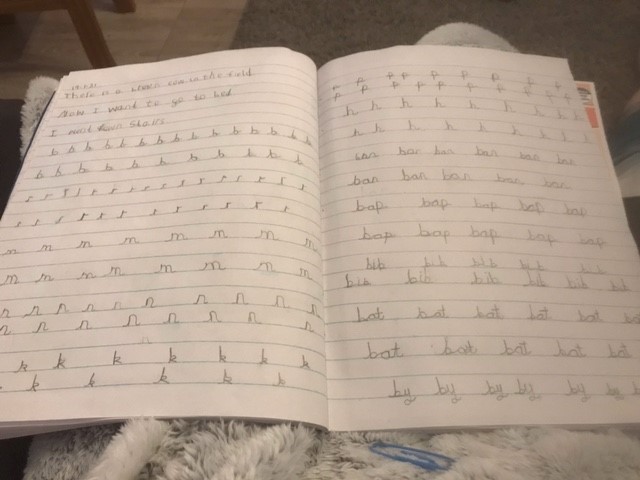 There is a brown cow in the field
Now I want to go to bed
I went down stairs
b b b b b b b b b b b b b
b b b b b b b b b
r r r r r r r r r r r r r r
r r r r r r r r r r r
m m m m m m m m
m m m m m m m m
n n n n n n n n n
n n n n n n n n
k k k k k k k
k k k k k
p p p p p p p p
p p p p p p p p p
h h h h h h h h
h h h h h h h h
ban ban ban ban ban ban
ban ban ban ban ban
bap bap bap bap bap
bap bap bap bap bap
bib bib bib bib bib
bib bib bib bib bib bib
bat bat bat bat bat bat
bat bat bat bat bat
by by by by by by by